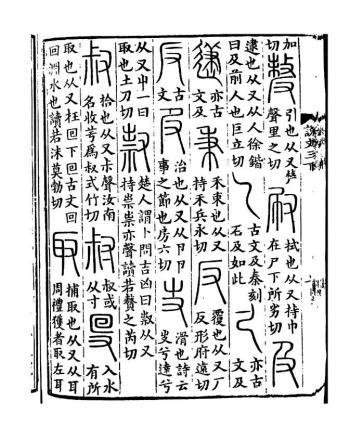 加
切
𠭰
引也从又𠩺
聲里之切
㕞
拭也从又持巾
在尸下所劣切
及
逮也从又从人徐鍇
曰及前人也巨立切
乁
古文及秦刻
石及如此
亦古
文及
亦古
文及
秉
禾束也从又
持禾兵永切
反
覆也从又厂
反形府遠切
古
文
𠬝
治也从又从卪卪
事之節也房六切
𠬢
滑也詩云
𠬢兮達兮
从又屮一曰
取也土刀切
楚人謂卜問吉凶曰𣀔从又
持祟祟亦聲讀若贅之芮切
叔
拾也从又尗聲汝南
名收芌爲叔式竹切
叔或
从寸
𠬸
入水
有所
取也从又在囘下囘古文回
回淵水也讀若沫莫勃切
取
捕取也从又从耳
周禮獲者取左耳